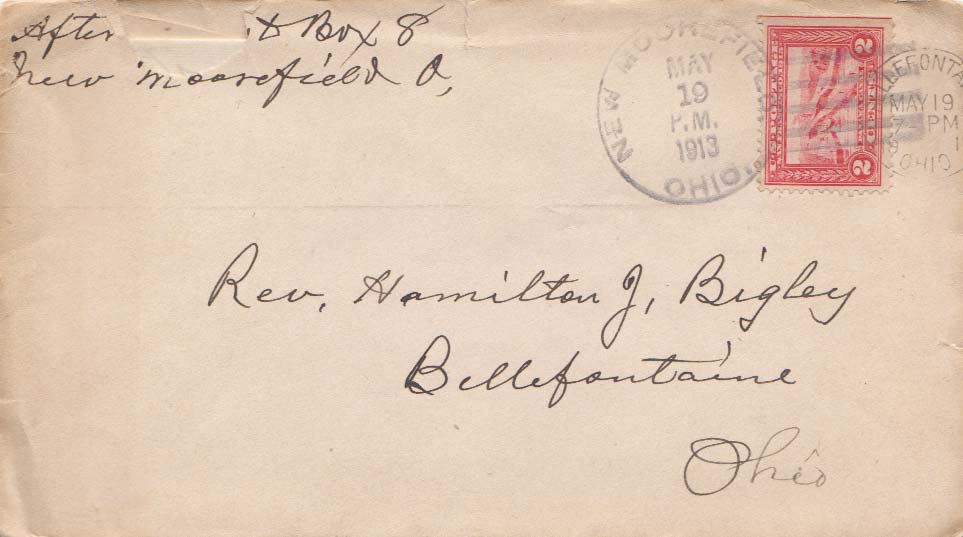 After & Box 8
New Moorefield O,
NEW MOOREFIELD
MAY
19
P.M.
1913
OHIO
2 CENTS 2
MAY 19
7 PM
OHIO
Rev, Hamilton J, Bigley
Bellefontaine
Ohio